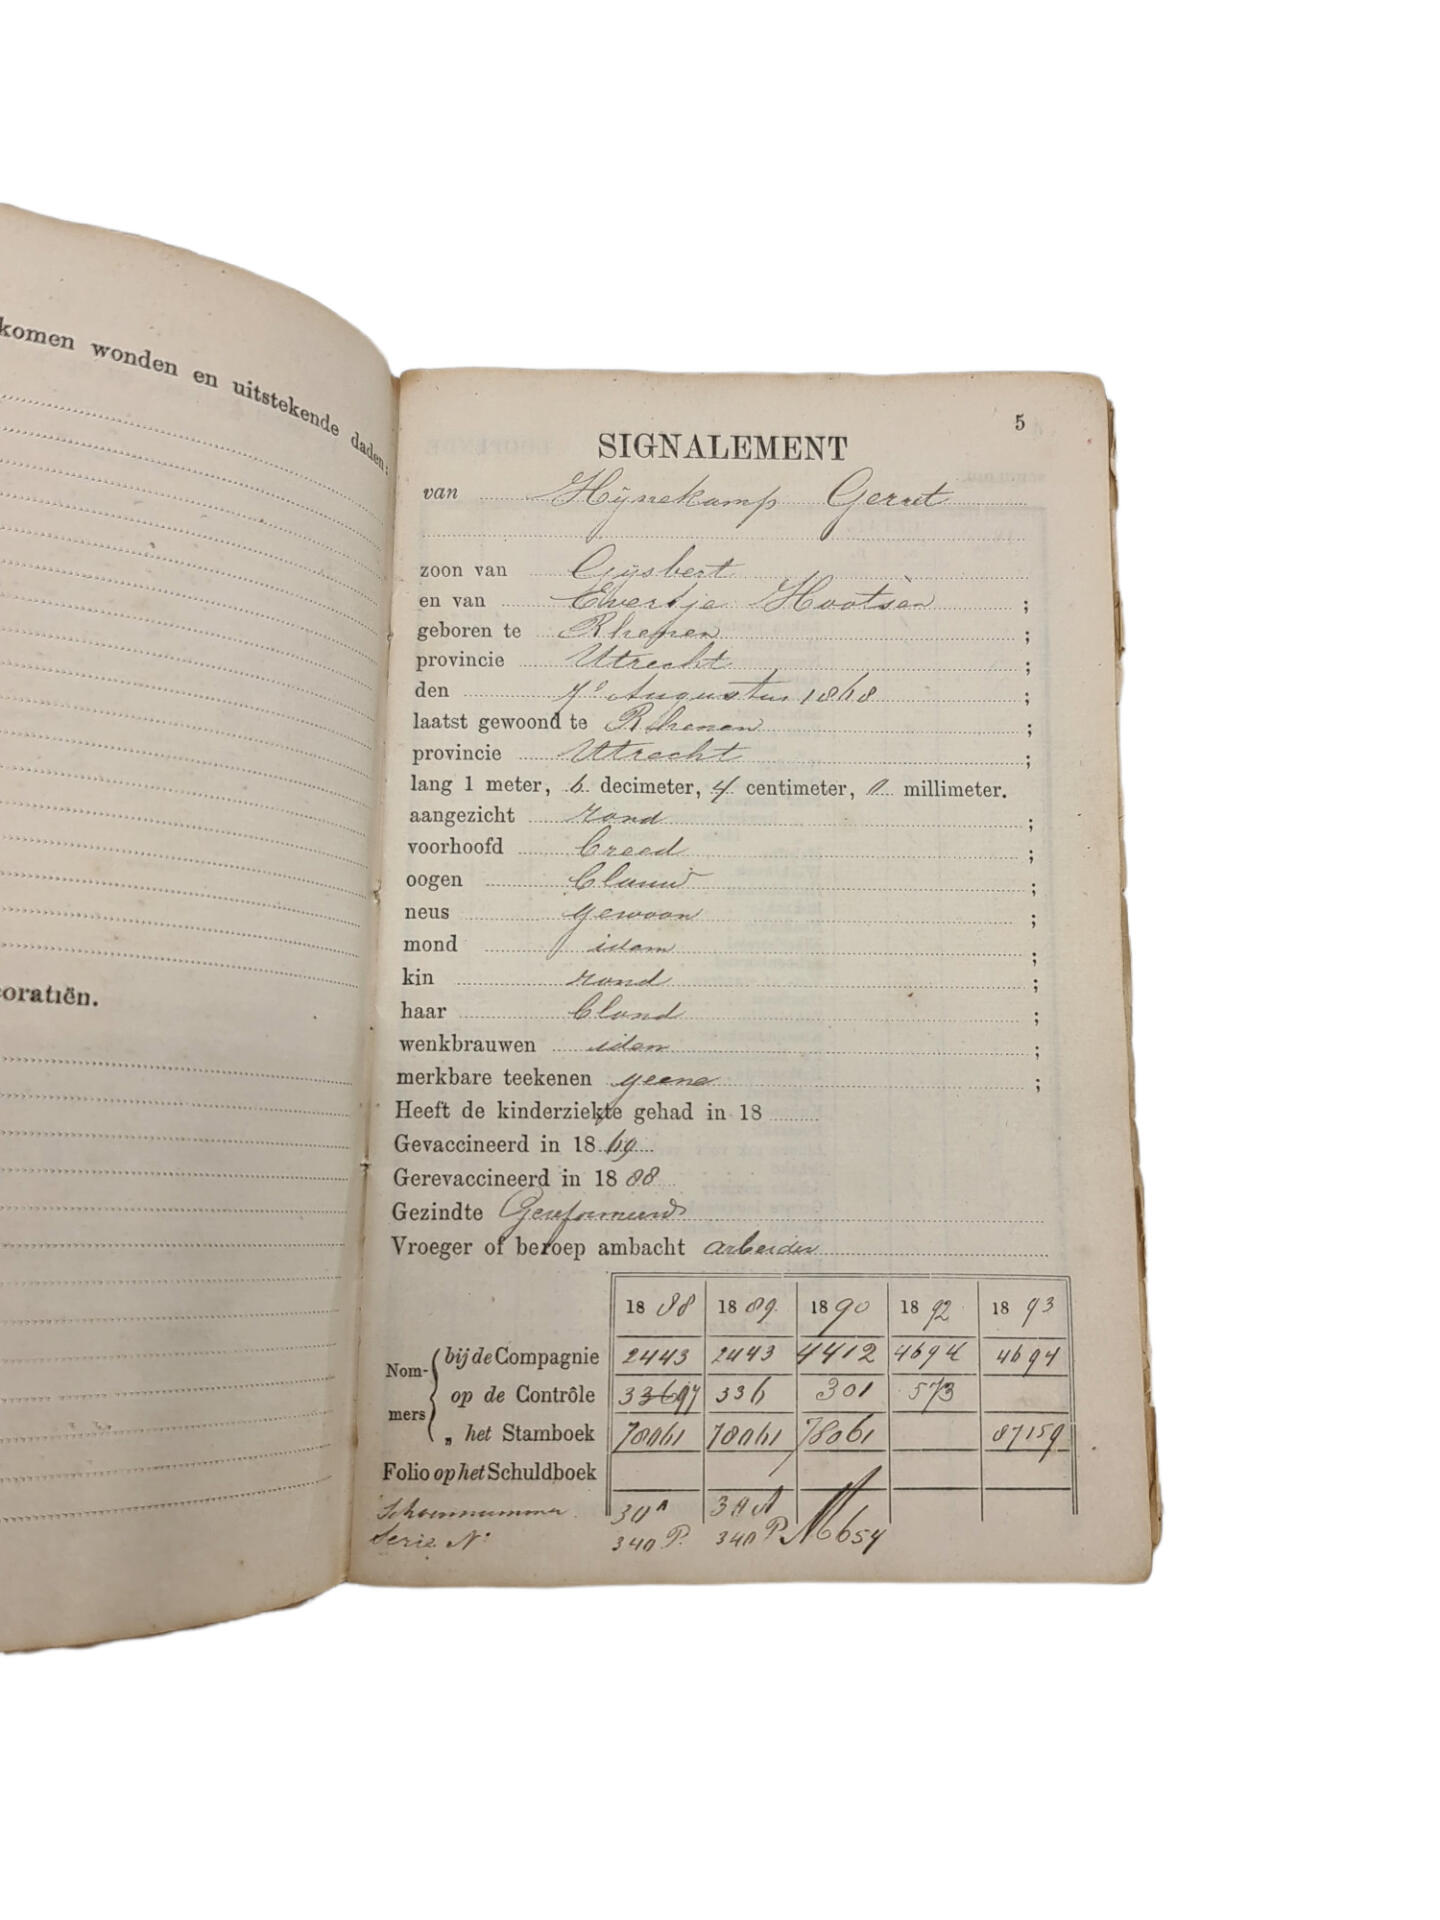 komen wonden en uitstekende daden:
oratiën.
5
SIGNALEMENT
van Hijnekamp Gerret
zoon van Gijsbert
en van Evertje Hootsen ;
geboren te Rhenen ;
provincie Utrecht ;
den Augustus 1868 ;
laatst gewoond te Rhenen ;
provincie Utrecht ;
lang 1 meter, 6 decimeter, 4 centimeter, 0 millimeter.
aangezicht rond ;
voorhoofd breed ;
oogen blauw ;
neus gewoon ;
mond idem ;
kin rond ;
haar blond ;
wenkbrauwen idem ;
merkbare teekenen geene ;
Heeft de kinderziekte gehad in 18
Gevaccineerd in 1869
Gerevaccineerd in 1888
Gezindte Gereformeerd
Vroeger of beroep ambacht arbeider
1888 1889 1890 1892 1893
Nommers bij de Compagnie 2443 2443 4412 4694 4694
op de Contrôle 336 301 573
„ het Stamboek 78061 78061 78061 87159
Folio op het Schuldboek
Schoennummer 30A 30A
Serie No 340 P. 340 P 6654